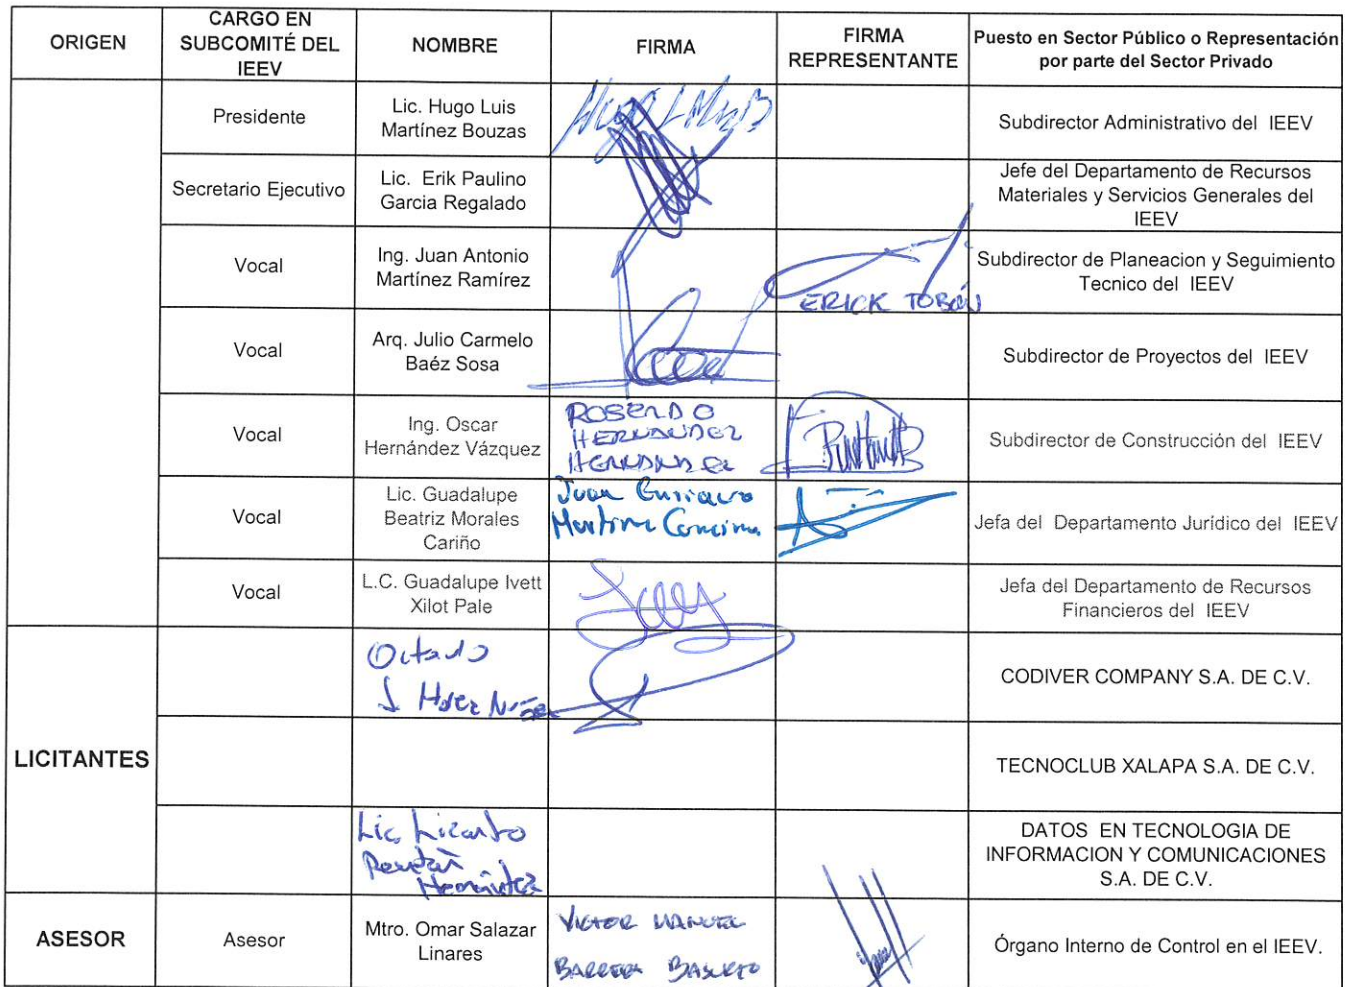 ORIGEN
CARGO EN
SUBCOMITÉ DEL
IEEV
NOMBRE
FIRMA
FIRMA
REPRESENTANTE
Puesto en Sector Público o Representación
por parte del Sector Privado
Presidente
Lic. Hugo Luis
Martínez Bouzas
Subdirector Administrativo del IEEV
Secretario Ejecutivo
Lic. Erik Paulino
Garcia Regalado
Jefe del Departamento de Recursos
Materiales y Servicios Generales del
IEEV
Vocal
Ing. Juan Antonio
Martínez Ramírez
ERICK TOBÓN
Subdirector de Planeacion y Seguimiento
Tecnico del IEEV
Vocal
Arq. Julio Carmelo
Baéz Sosa
Subdirector de Proyectos del IEEV
Vocal
Ing. Oscar
Hernández Vázquez
ROSENDO
HERNANDEZ
HERNANDEZ
Subdirector de Construcción del IEEV
Vocal
Lic. Guadalupe
Beatriz Morales
Cariño
Juan
Jefa del Departamento Jurídico del IEEV
Vocal
L.C. Guadalupe Ivett
Xilot Pale
Jefa del Departamento de Recursos
Financieros del IEEV
LICITANTES
Octavio
CODIVER COMPANY S.A. DE C.V.
TECNOCLUB XALAPA S.A. DE C.V.
Lic.
Hernández
DATOS EN TECNOLOGIA DE
INFORMACION Y COMUNICACIONES
S.A. DE C.V.
ASESOR
Asesor
Mtro. Omar Salazar
Linares
VICTOR MANUEL
BARRERA BASURTO
Órgano Interno de Control en el IEEV.